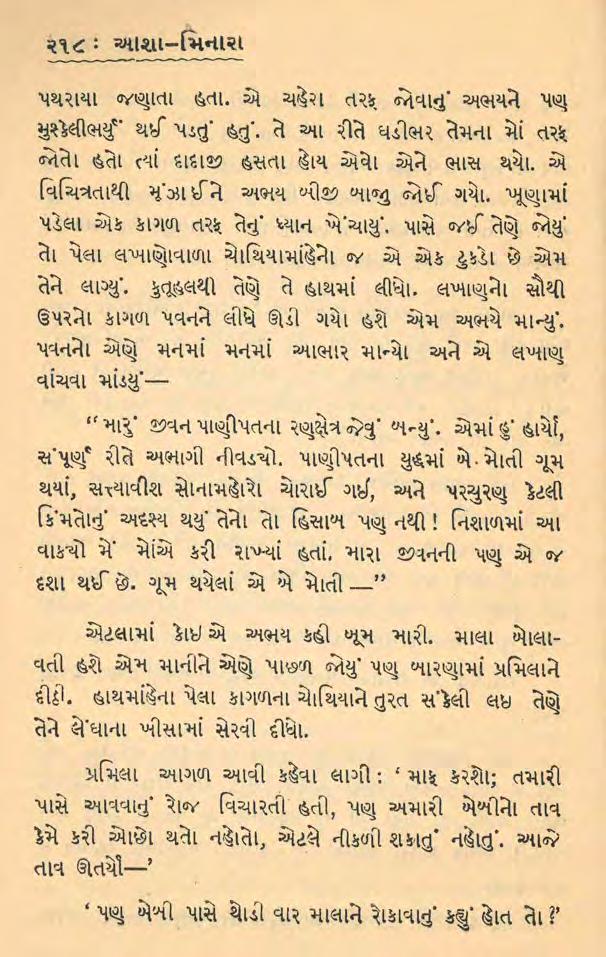 ૨૧૮ : આશા–મિનારા
પથરાયા જણાતા હતા. એ ચહેરા તરફ જોવાનું અભયને પણ
મુશ્કેલીભર્યું થઈ પડતું હતું. તે આ રીતે ઘડીભર તેમના મોં તરફ
જોતો હતો ત્યાં દાદાજી હસતા હોય એવો એને ભાસ થયો. એ
વિચિત્રતાથી મૂંઝાઈને અભય બીજી બાજુ જોઈ ગયો. ખૂણામાં
પડેલા એક કાગળ તરફ તેનું ધ્યાન ખેંચાયું. પાસે જઈ તેણે જોયું
તો પેલા લખાણોવાળા ચોથિયામાંહેનો જ એ એક ટુકડો છે એમ
તેને લાગ્યું. કુતૂહલથી તેણે તે હાથમાં લીધો. લખાણનો સૌથી
ઉપરનો કાગળ પવનને લીધે ઊડી ગયો હશે એમ અભયે માન્યું.
પવનનો એણે મનમાં મનમાં આભાર માન્યો અને એ લખાણ
વાંચવા માંડ્યું—
“મારું જીવન પાણીપતના રણક્ષેત્ર જેવું બન્યું. એમાં હું હાર્યો,
સંપૂર્ણ રીતે અભાગી નીવડ્યો. પાણીપતના યુદ્ધમાં બે મોતી ગૂમ
થયાં, સત્ત્યાવીશ સોનામહોરો ચોરાઈ ગઈ, અને પરચુરણ કેટલી
કિંમતોનું અદૃસ્ય થયું તેનો તો હિસાબ પણ નથી! નિશાળમાં આ
વાક્યો મેં મોંએ કરી રાખ્યાં હતાં. મારા જીવનની પણ એ જ
દશા થઈ છે. ગૂમ થયેલાં એ બે મોતી —”
એટલામાં કોઇએ અભય કહી બૂમ મારી. માલા બોલા-
વતી હશે એમ માનીને એણે પાછળ જોયું પણ બારણામાં પ્રમિલાને
દીઠી. હાથમાંહેના પેલા કાગળના ચોથિયાને તુરત સંકેલી લઇ તેણે
તેને લેંઘાના ખીસામાં સેરવી દીધો.
પ્રમિલા આગળ આવી કહેવા લાગી : ‘માફ કરશો; તમારી
પાસે આવવાનું રોજ વિચારતી હતી, પણ અમારી બેબીનો તાવ
કેમે કરી ઓછો થતો નહોતો, એટલે નીકળી શકાતું નહોતું. આજે
તાવ ઊતર્યો—’
‘પણ બેબી પાસે થોડી વાર માલાને રોકાવાનું કહ્યું હોત તો?’